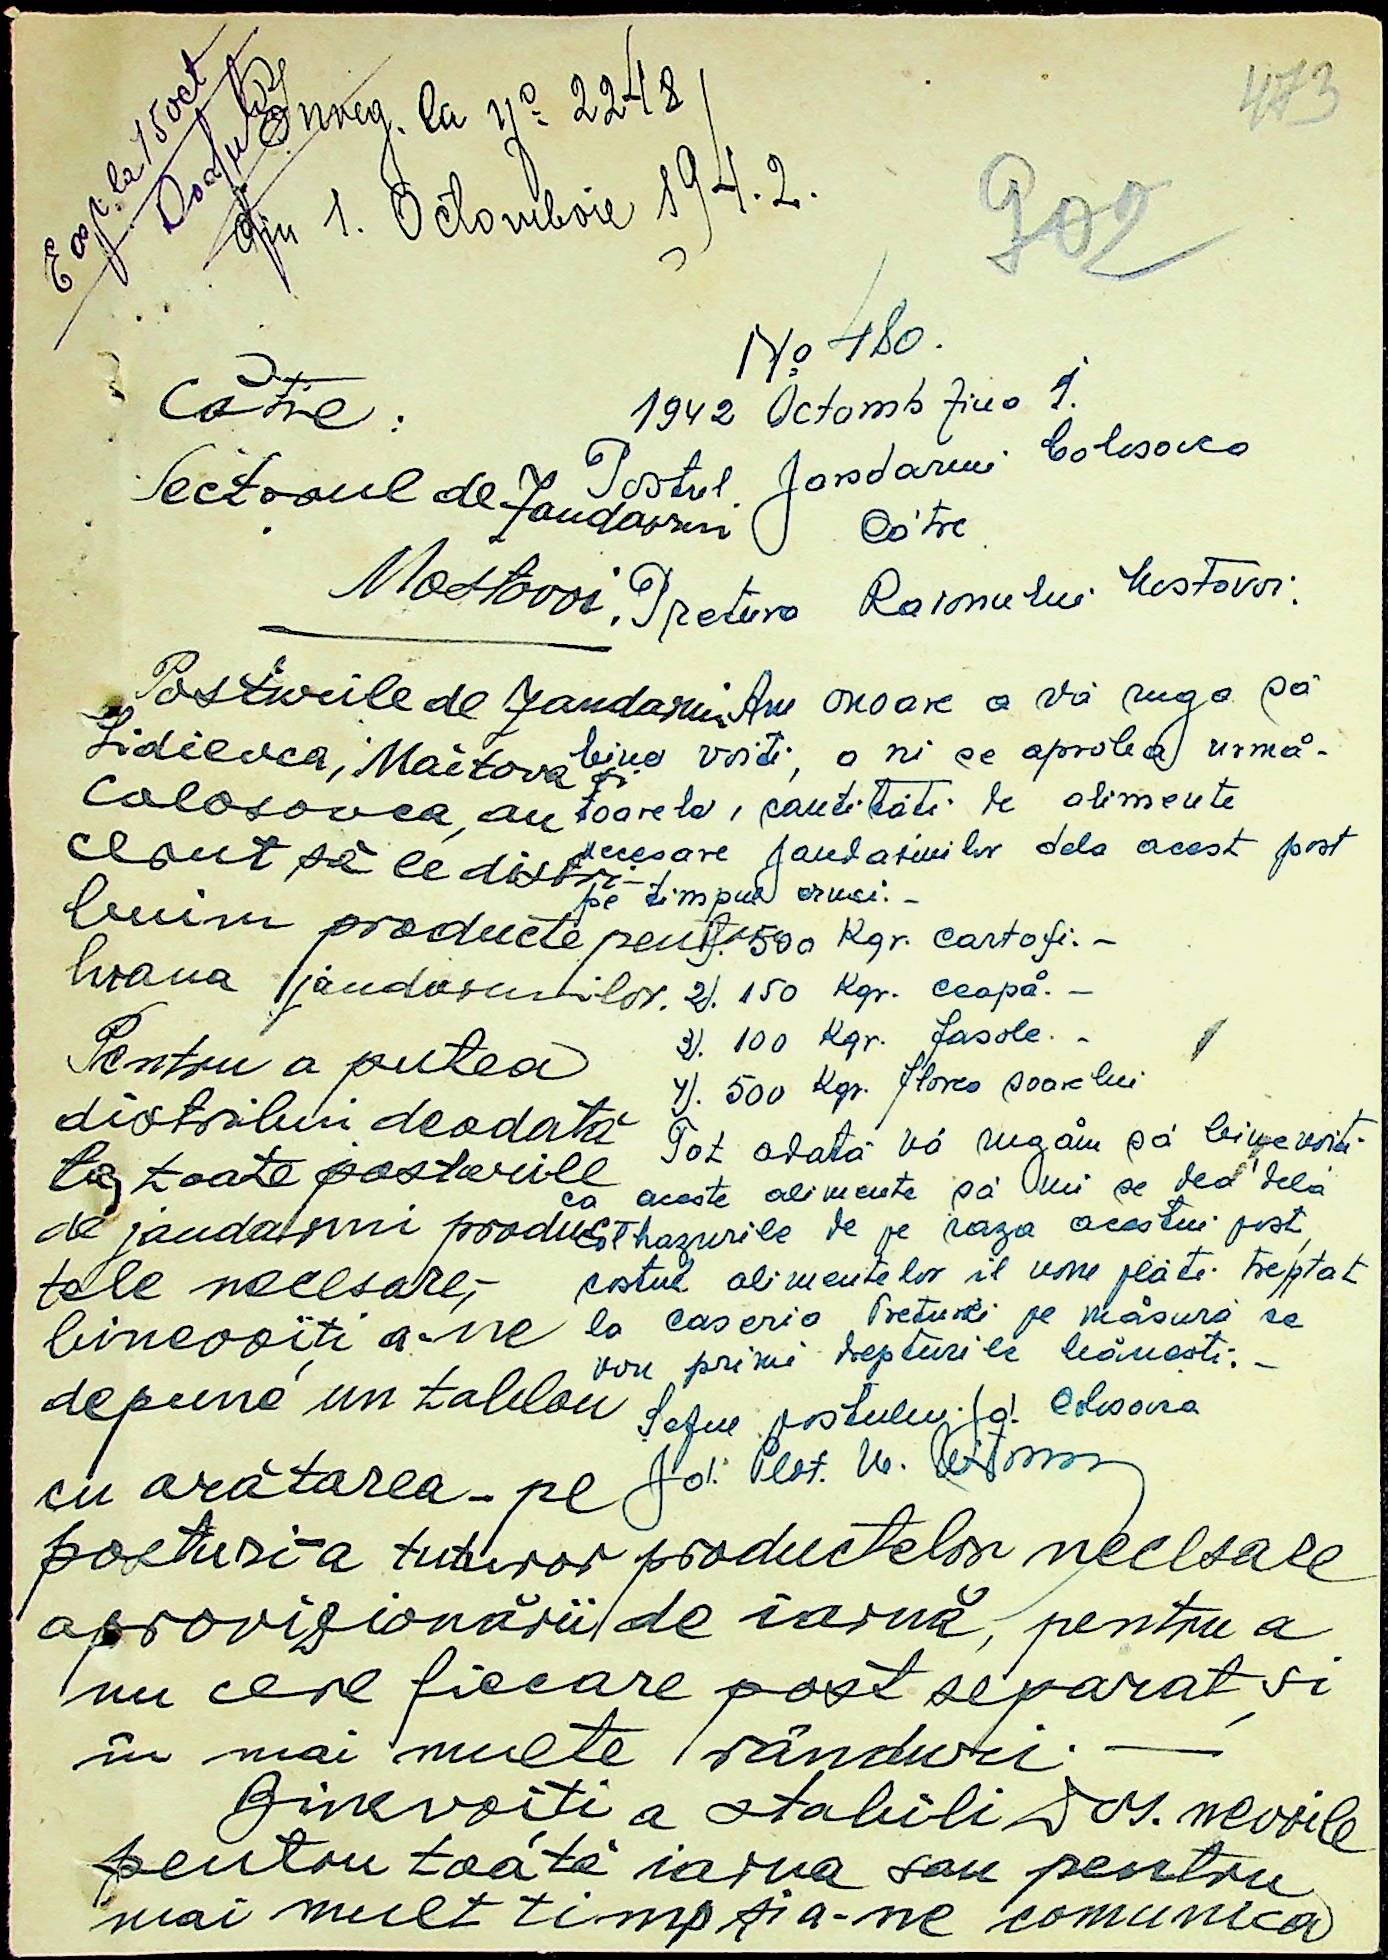 473
902
Exp. la 15 oct
Dosar
Înreg. la No 2248
din 1. Octombrie 1942.
No 480.
1942 Octomb ziua 1.
Postul Jandarmi Colosovca
Către
Pretura Raionului Mostovoi.
Am onoare a vă ruga să
bine voiți, a ni se aproba urmă-
toarele, cantități de alimente
necesare jandarmilor dela acest post
pe timpul ernei. -
1). 500 Kgr. cartofi. -
2). 150 Kgr. ceapă. -
3). 100 Kgr. fasole. -
4). 500 Kgr. florea soarelui
Tot odată vă rugăm să binevoiți
ca aceste alimente să ni se dea dela
colhazurile de pe raza acestui post,
costul alimentelor îl vom plăti treptat
la caseria Preturii pe măsură ce
vom primi drepturile bănești. -
Șeful postului jd. Colosovca
Jd. Plot. M.
Către:
Sectorul de Jandarmi
Mostovoi.
Posturile de Jandarmi
Lidievca, Maitova și
Colosovca, au
cerut să le distri-
buim producte pentru
hrana jandarmilor.
Pentru a putea
distribui deodată
la toate posturile
de jandarmi produc-
tele necesare,-
binevoiți a-ne
depune un tablou
cu arătarea - pe
posturi - a tuturor productelor necesare
aprovizionării de iarnă, pentru a
nu cere fiecare post separat, și
în mai multe rânduri. —
Binevoiți a stabili Dvs. nevoile
pentru toată iarna sau pentru
mai mult timp și a-ne comunica